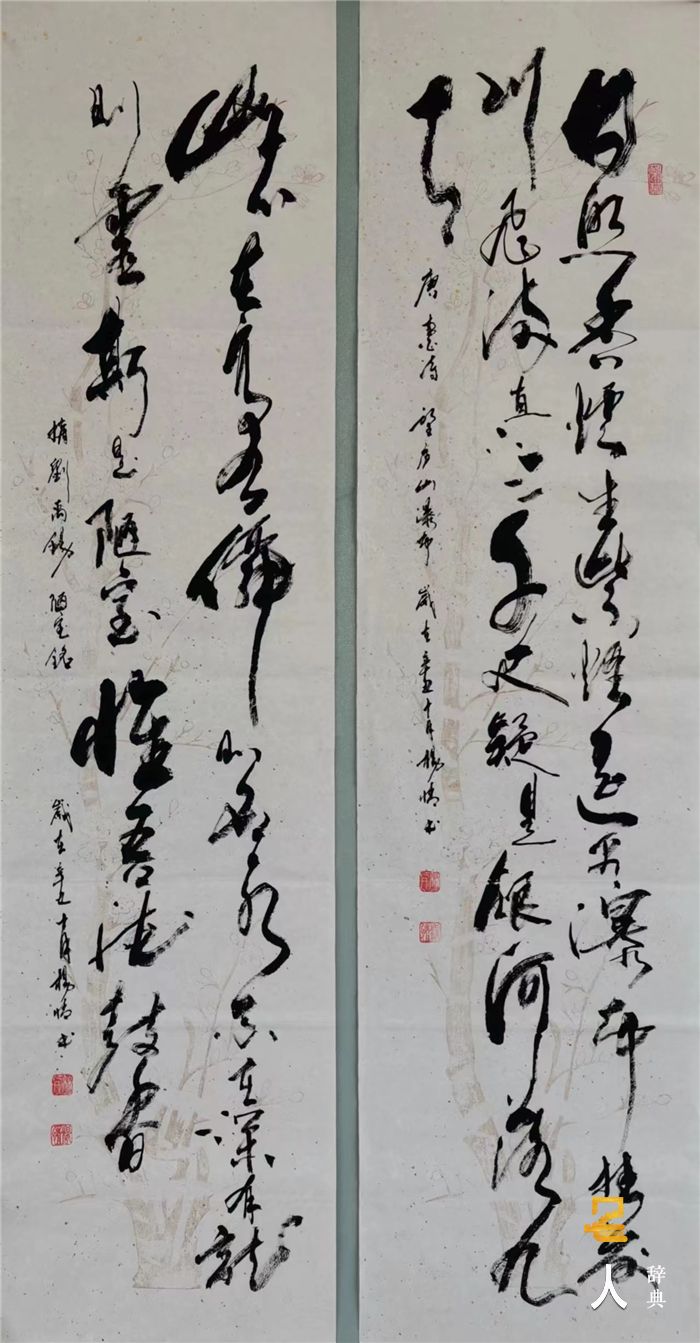 日照香爐生紫煙遥看瀑布掛前
川飛流直下三千尺疑是銀河落九
天
唐 李白诗 望庐山瀑布 歲在辛丑十月楊晴书
山不在高有僊则名水不在深有龍
则靈斯是陋室惟吾德馨
摘劉禹錫陋室銘 歲在辛丑十月楊晴书
名人
辞典